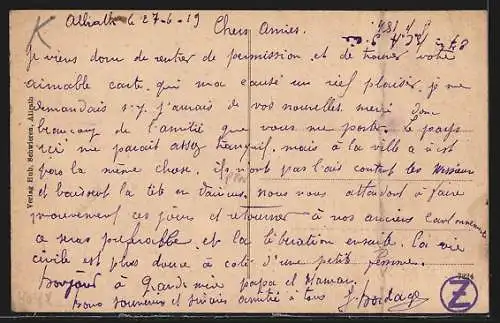 K
le 27-6-19 Chers Amies.
Je viens donc de rentrer de permission et de trouver votre
aimable carte qui m'a causé un réel plaisir. je me
demandais s'y j'aurais de vos nouvelles. merci donc
beaucoup de l'amitié que vous me porter. Le pays
ici me parait assez tranquil, mais à la ville c'est
pas la même chose. ils n'ont pas l'air content les Messieurs
et baissent la tête en nous nous attendons à faire
mouvement ces jours et retourner à nos anciens cantonnements
ce sera préférable et la libération ensuite. la vie
civile est plus douce à coté d'une petite femme.
bonjour à Grand mère papa et Maman.
bons souvenirs et amitié à tous J.
Verlag Hub. Schwieren, Allrath
7224
Z